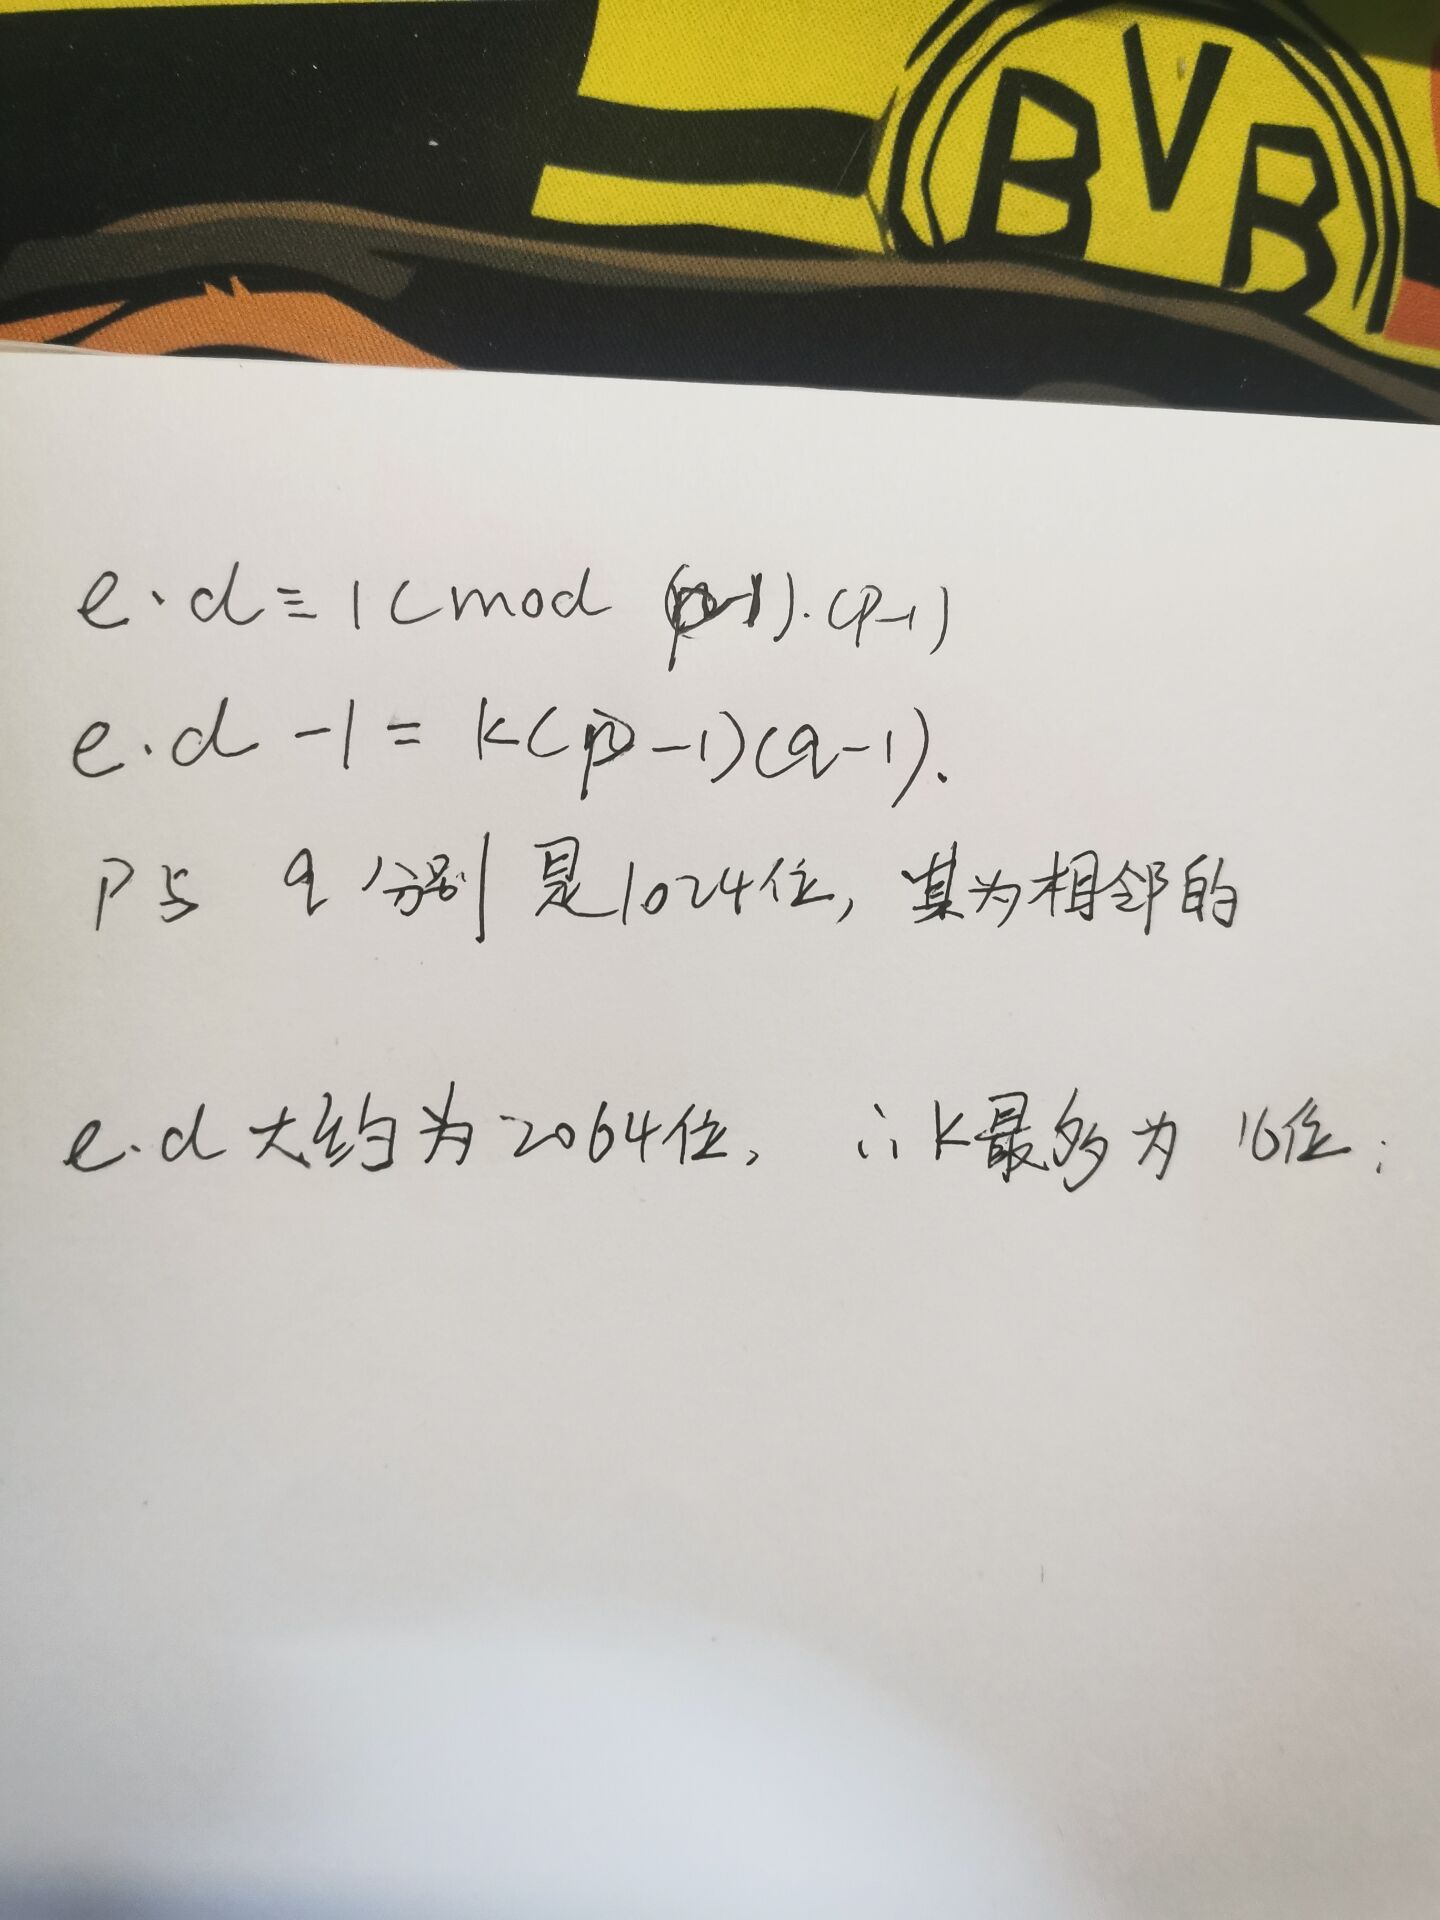 BVB
e·d≡1(mod (p-1)·(q-1)
e·d-1=k(p-1)(q-1).
p与 q分别是1024位,其为相邻的
e·d大约为2064位, ∴k最多为 16位;